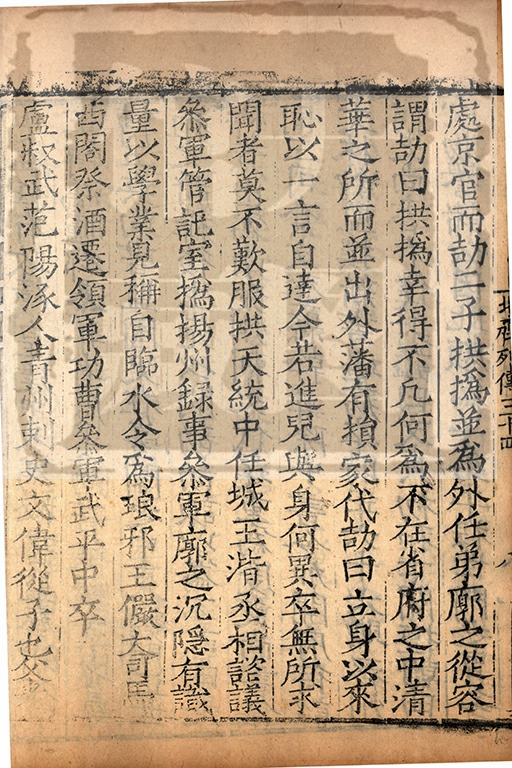 處京官而劼二子拱撝並為外任弟廓之從容
謂劼曰拱撝幸得不凡何為不在省府之中清
華之所而並出外藩有損家代劼曰立身以來
恥以一言自達今若進兒與身何異卒無所求
聞者莫不歎服拱天統中任城王湝丞相諮議
叅軍管記室撝揚州録事叅軍廓之沉隱有識
量以學業見稱自臨水令為琅邪王儼大司馬
西閤祭酒遷領軍功曹叅軍武平中卒
盧叔武范陽涿人青州刺史文偉從子也父
北齊列傳三十四